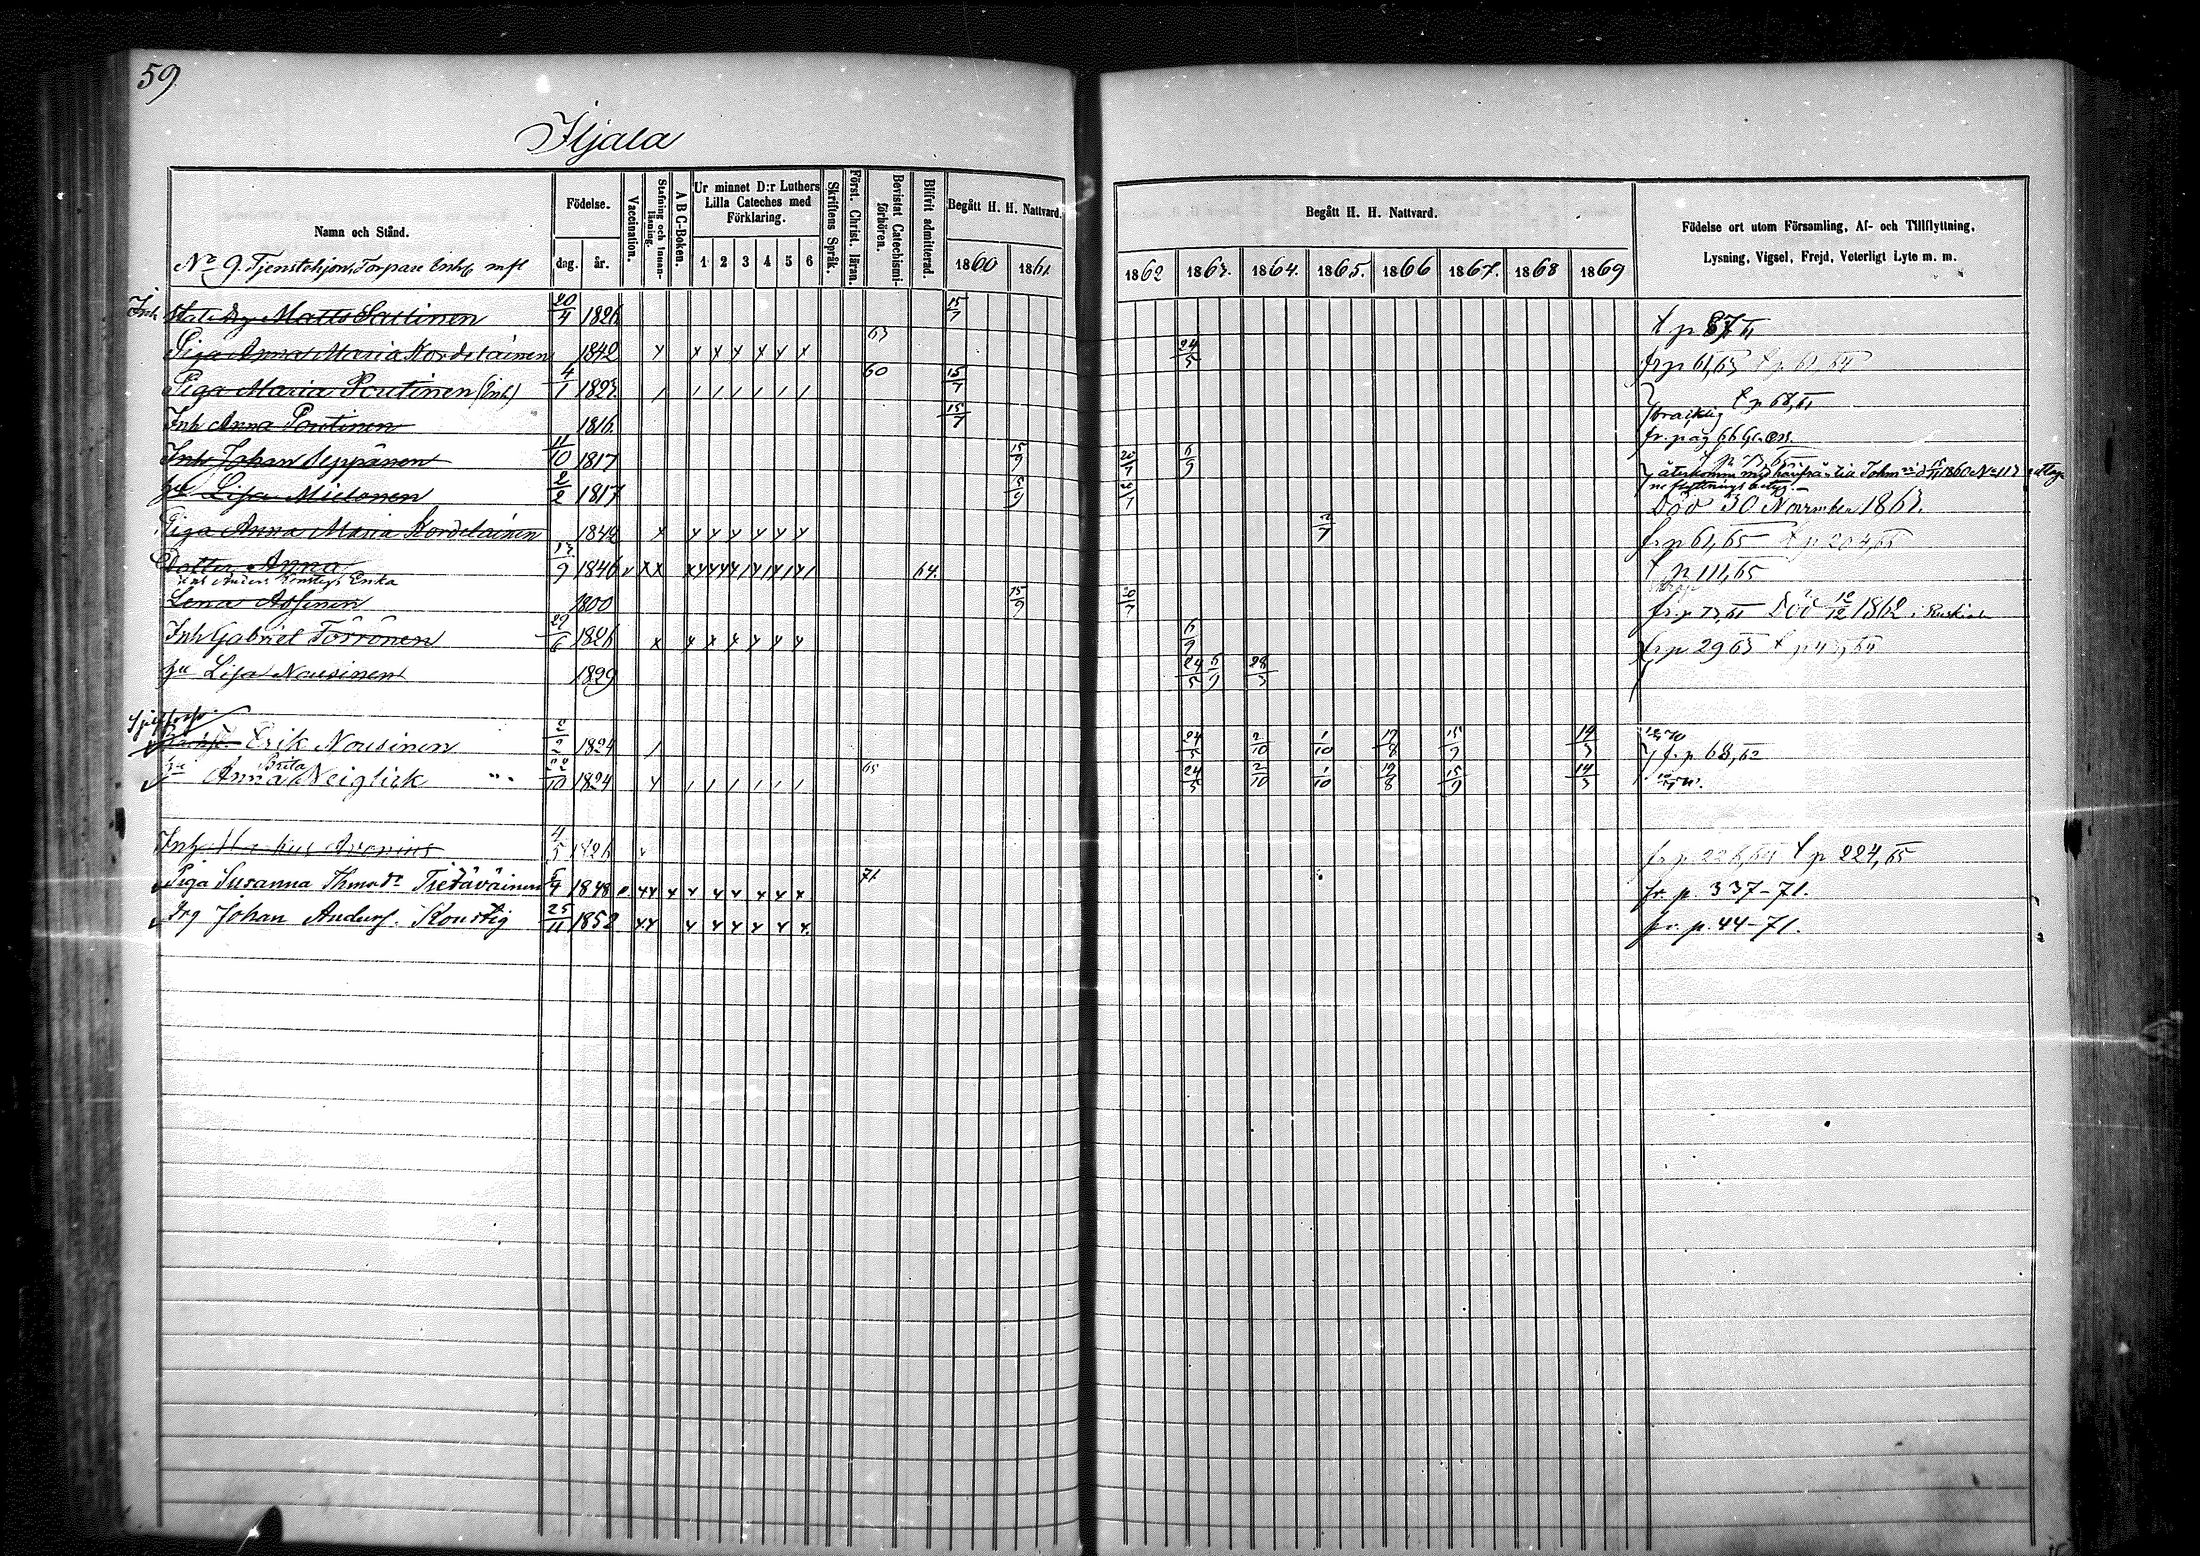 59
Iljala
Namn och Stånd.
Födelse.
dag. år.
Vaccination.
Stafning och Innanläsning.
A B C-Boken.
Ur minnet D:r Luthers Lilla Cateches med Förklaring.
1 2 3 4 5 6
Skriftens Språk.
Först. Christ. läran.
Bevistat Catechismiförhören.
Blifvit admitterad.
Begått H. H. Nattvard.
1860 1861
Begått H. H. Nattvard.
1862 1863. 1864. 1865. 1866 1867. 1868 1869
Födelse ort utom Församling, Af- och Tillflyttning,
Lysning, Vigsel, Frejd, Veterligt Lyte m. m.
No 9. Tjenstehjon, Torpare Enkf mfl
Inh Matts 20/4 1826 15/7 t p 87
Piga Anna Maria Kordelainen 1842 x x x x x x x 63 24/5 fr p 61,63
Piga Maria Poutinen (Enh) 4/1 1823 60 15/7
Inh Anna Poutinen 1816 15/7 bräcklig t p 68,61
Inh Johan Seppänen 11/10 1817 15/9 20/7 6/9 fr. pag 66
hu Lisa Mielonen 2/2 1817 15/9 20/7 Död 30 November 1863.
Piga Anna Maria Kordelainen 1842 x x x x x x x 2/7 fr p 61,65 t p 204,65
Dotter Anna 13/9 1846 64. t p 111,65
Inh Anders Konstigs Enka
Lena Assinen 1800 15/9 20/7 fr. p 73,61 Död 12/12 1862 i Ruskiala
Inh Gabriel Törrönen 29/6 1826 x x x x x x x 6/9 fr p 29 63
hu Lisa Nousinen 1829 24/5 6/9 28/3
Erik Nousinen 2/2 1824 24/5 2/10 1/10 19/8 15/9 14/3 fr. p 68,62
hu Anna Brita Neiglick 22/10 1824 65 24/5 2/10 1/10 19/8 15/9 14/3
Inh Markus 4/5 1826 t p 224,65
Piga Susanna Thmsdr Tietäväinen 5/4 1848 71 fr. p. 337-71.
Drg Johan Andersf. Konstig 25/11 1852 fr. p. 44-71.